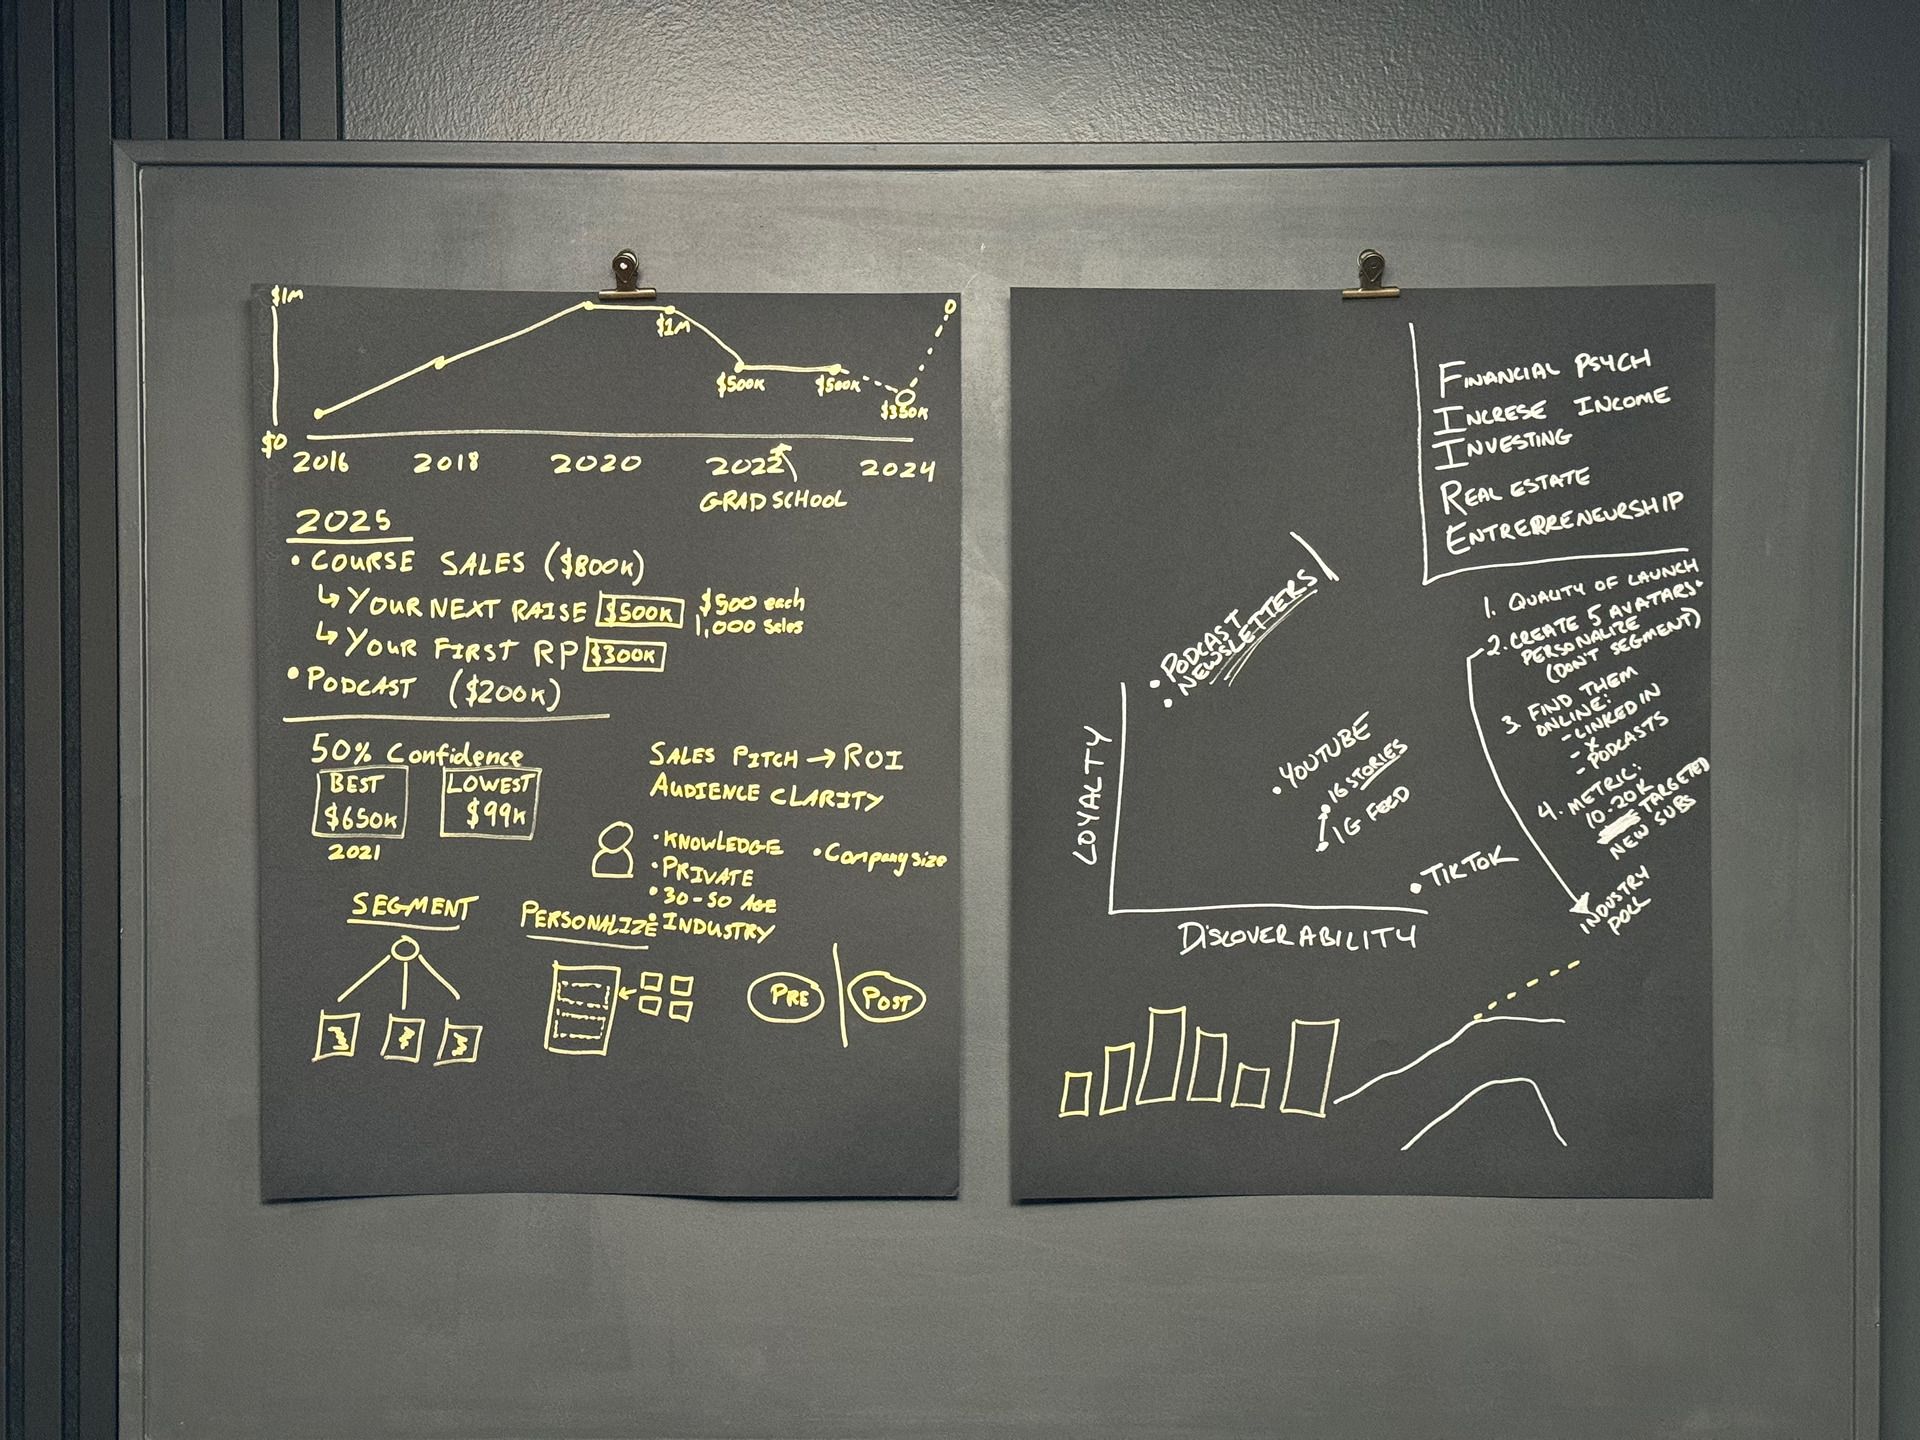 $1M
$1M
$500K
$500K
$350K
$0
2016 2018 2020 2022 2024
GRAD SCHOOL
2025
• COURSE SALES ($800K)
↳ YOUR NEXT RAISE $500K $500 each
1,000 sales
↳ YOUR FIRST RP $300K
• PODCAST ($200K)
50% Confidence
BEST
$650K
2021
LOWEST
$99K
SALES PITCH → ROI
AUDIENCE CLARITY
• KNOWLEDGE
• PRIVATE
• 30-50 AGE
• INDUSTRY
• Company size
SEGMENT
PERSONALIZE
PRE
POST
FINANCIAL PSYCH
INCRESE INCOME
INVESTING
REAL ESTATE
ENTREPRENEURSHIP
1. QUALITY OF LAUNCH
2. CREATE 5 AVATARS
PERSONALIZE
(DON'T SEGMENT)
3. FIND THEM
ONLINE:
- LINKED IN
- X
- PODCASTS
4. METRIC:
10-20K
TARGETED
NEW SUBS
INDUSTRY
POLL
• PODCAST
• NEWSLETTERS
• YOUTUBE
• IG STORIES
• IG FEED
• TIKTOK
LOYALTY
DISCOVERABILITY